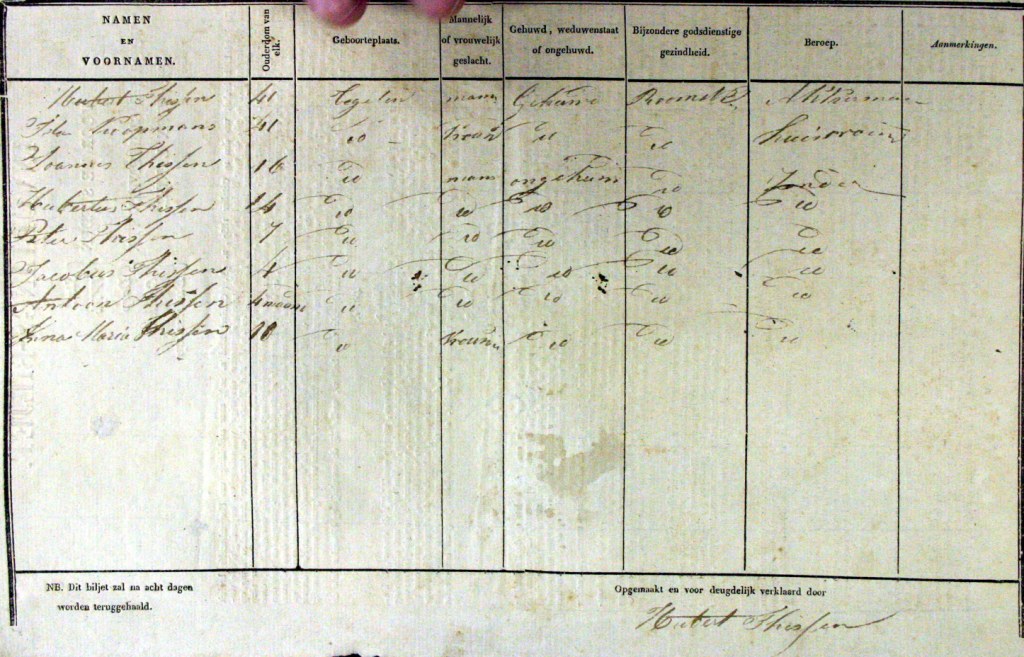 NAMEN EN VOORNAMEN. Ouderdom van elk. Geboorteplaats. Mannelijk of vrouwelijk geslacht. Gehuwd, weduwenstaat of ongehuwd. Bijzondere godsdienstige gezindheid. Beroep. Aanmerkingen.
Hubert Thissen 41 Tegelen mann Roomsch
Koopmans 41 do vrouw do do huisvrouw
Joannes Thissen 16 do mann do
Hubertus Thissen 14 do do do do do
Peter Thissen 7 do do do do do
Jacobus Thissen 4 do do do do do
Antoon Thissen 4 do do do do do
Anna Maria Thissen do do do do
NB. Dit biljet zal na acht dagen
worden teruggehaald.
Opgemaakt en voor deugdelijk verklaard door
Hubert Thissen